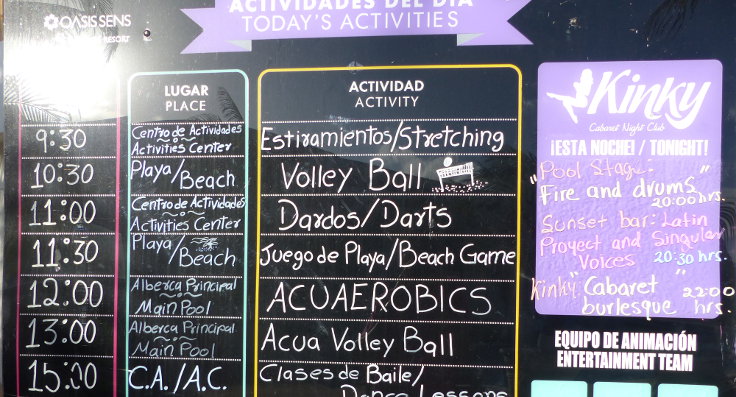 ACTIVIDADES DEL DÍA
TODAY'S ACTIVITIES
OASIS SENS
RESORT
LUGAR
PLACE
ACTIVIDAD
ACTIVITY
9:30 Centro de Actividades Activities Center Estiramientos/Stretching
10:30 Playa/Beach Volley Ball
11:00 Centro de Actividades Activities Center Dardos/Darts
11:30 Playa/Beach Juego de Playa/Beach Game
12:00 Alberca Principal Main Pool ACUAEROBICS
13:00 Alberca Principal Main Pool Acua Volley Ball
15:00 C.A./A.C. Clases de Baile/ Dance Lessons
Kinky
Cabaret Night Club
¡ESTA NOCHE! / TONIGHT!
"Pool Stage:
Fire and drums"
20:00 hrs.
Sunset bar: Latin
Proyect and Singular
Voices 20:30 hrs.
Kinky "Cabaret
burlesque" 22:00 hrs.
EQUIPO DE ANIMACIÓN
ENTERTAINMENT TEAM